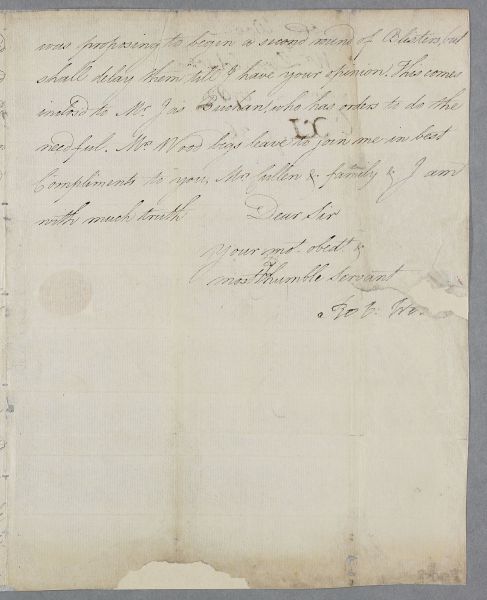 was proposing to begin a second round of Blisters, but
shall delay them till I have your opinion. This comes
inclosd to Mr. Jas Buchan, who has orders to do the
needful. Mrs Wood begs leave to join me in best
Compliments to you, Mrs Cullen & family & I am
with much truth Dear Sir
Your mot. obedt. &
most humble Servant